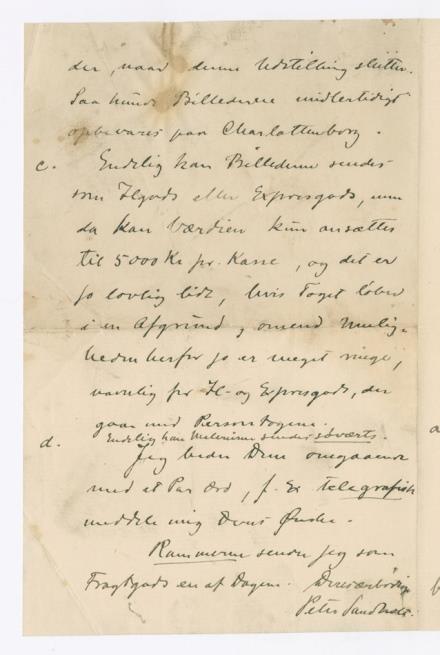 der, naar denne Udstilling slutter.
Saa kunde Billederne midlertidigt
opbevares paa Charlottenborg.
c. Endelig kan Billederne sendes
som Ilgods eller Expresgods, men
da kan Værdien kun ansættes
til 5000 Kr pr. Kasse, og det er
jo lovlig lidt, hvis Toget løber
i en Afgrund, omend Mulig-
heden herfor jo er meget ringe,
navnlig for Il- og Expresgods, der
gaar med Persontogene.
d. Endelig kan Malerierne sendes søværts.
Jeg beder Dem omgaaende
med et Par Ord, f. Ex telegrafisk
meddele mig Deres Ønske.
Rammerne sender jeg som
Fragtgods en af Dagene. Deres ærbødige
Peter